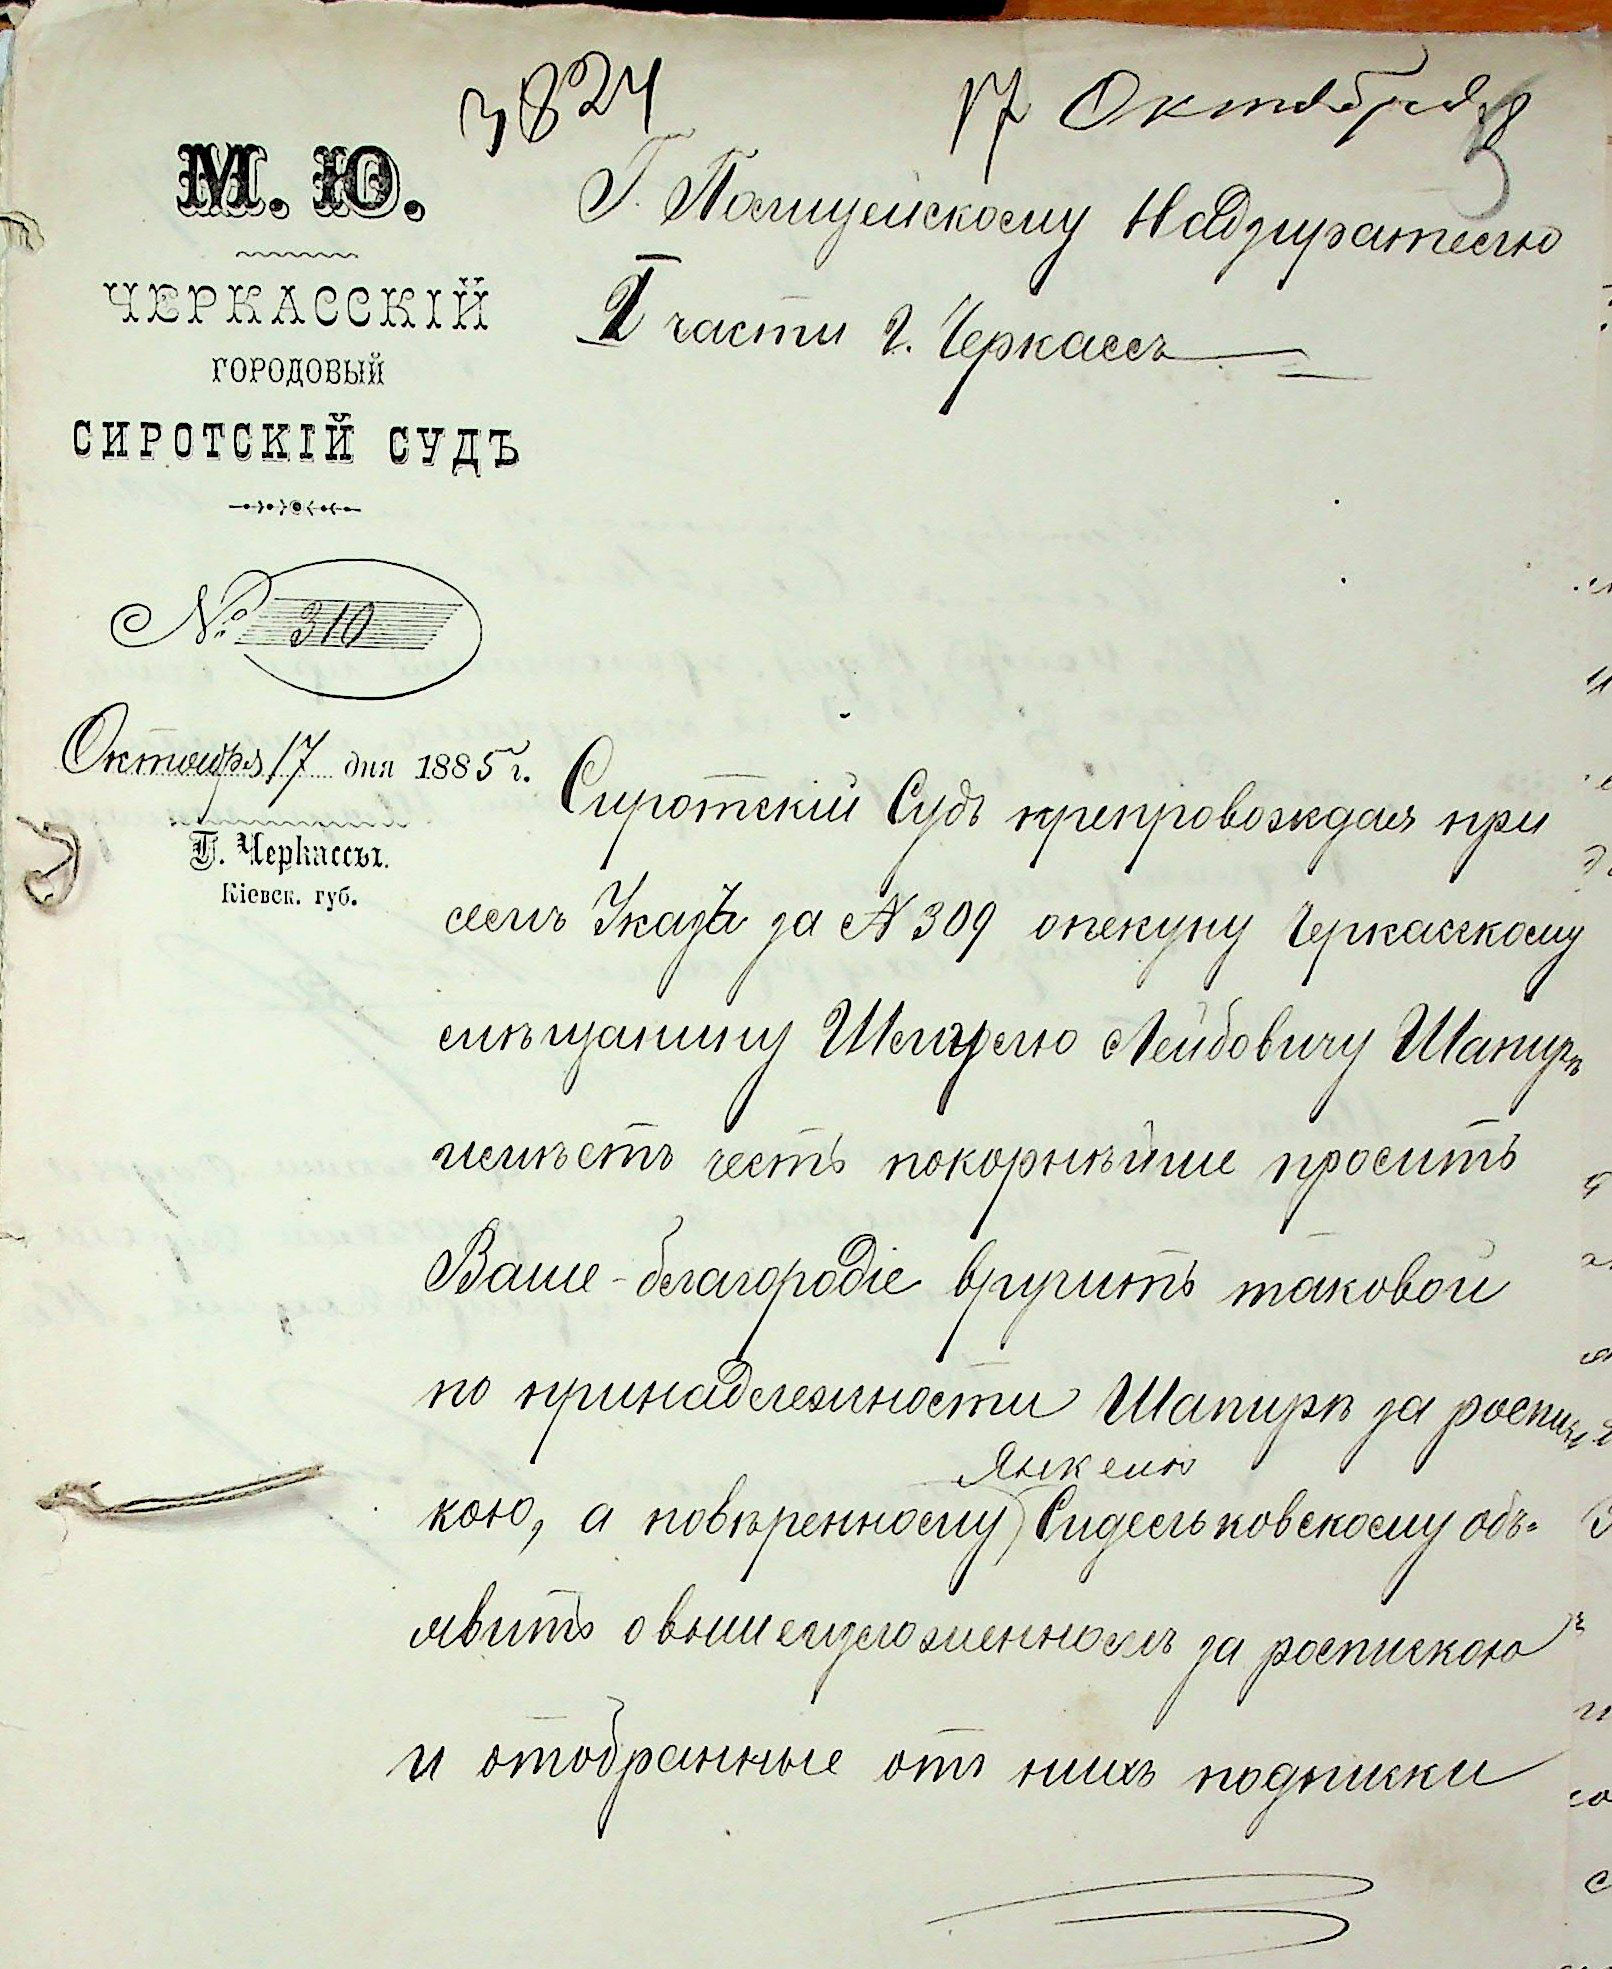 3824
17 Октября
5
М. Ю.
ЧЕРКАССКІЙ
ГОРОДОВЫЙ
СИРОТСКІЙ СУДЪ
№ 310
Октября 17 дня 1885 г.
Г. Черкассы.
Кіевск. губ.
Г. Полицейскому Надзирателю
I части г. Черкассъ
Сиротскій Судъ препровождая при
семъ Указъ за № 309 опекуну Черкасскому
мѣщанину Лейбовичу Шапирѣ
имѣетъ честь покорнѣйше просить
Ваше-благородіе вручить таковой
по принадлежности Шапирѣ за роспис
Янкелю
кою, а повѣренному Сидельковскому объ=
явить о вышеизложенномъ за роспискою
и отобранные отъ нихъ подписки